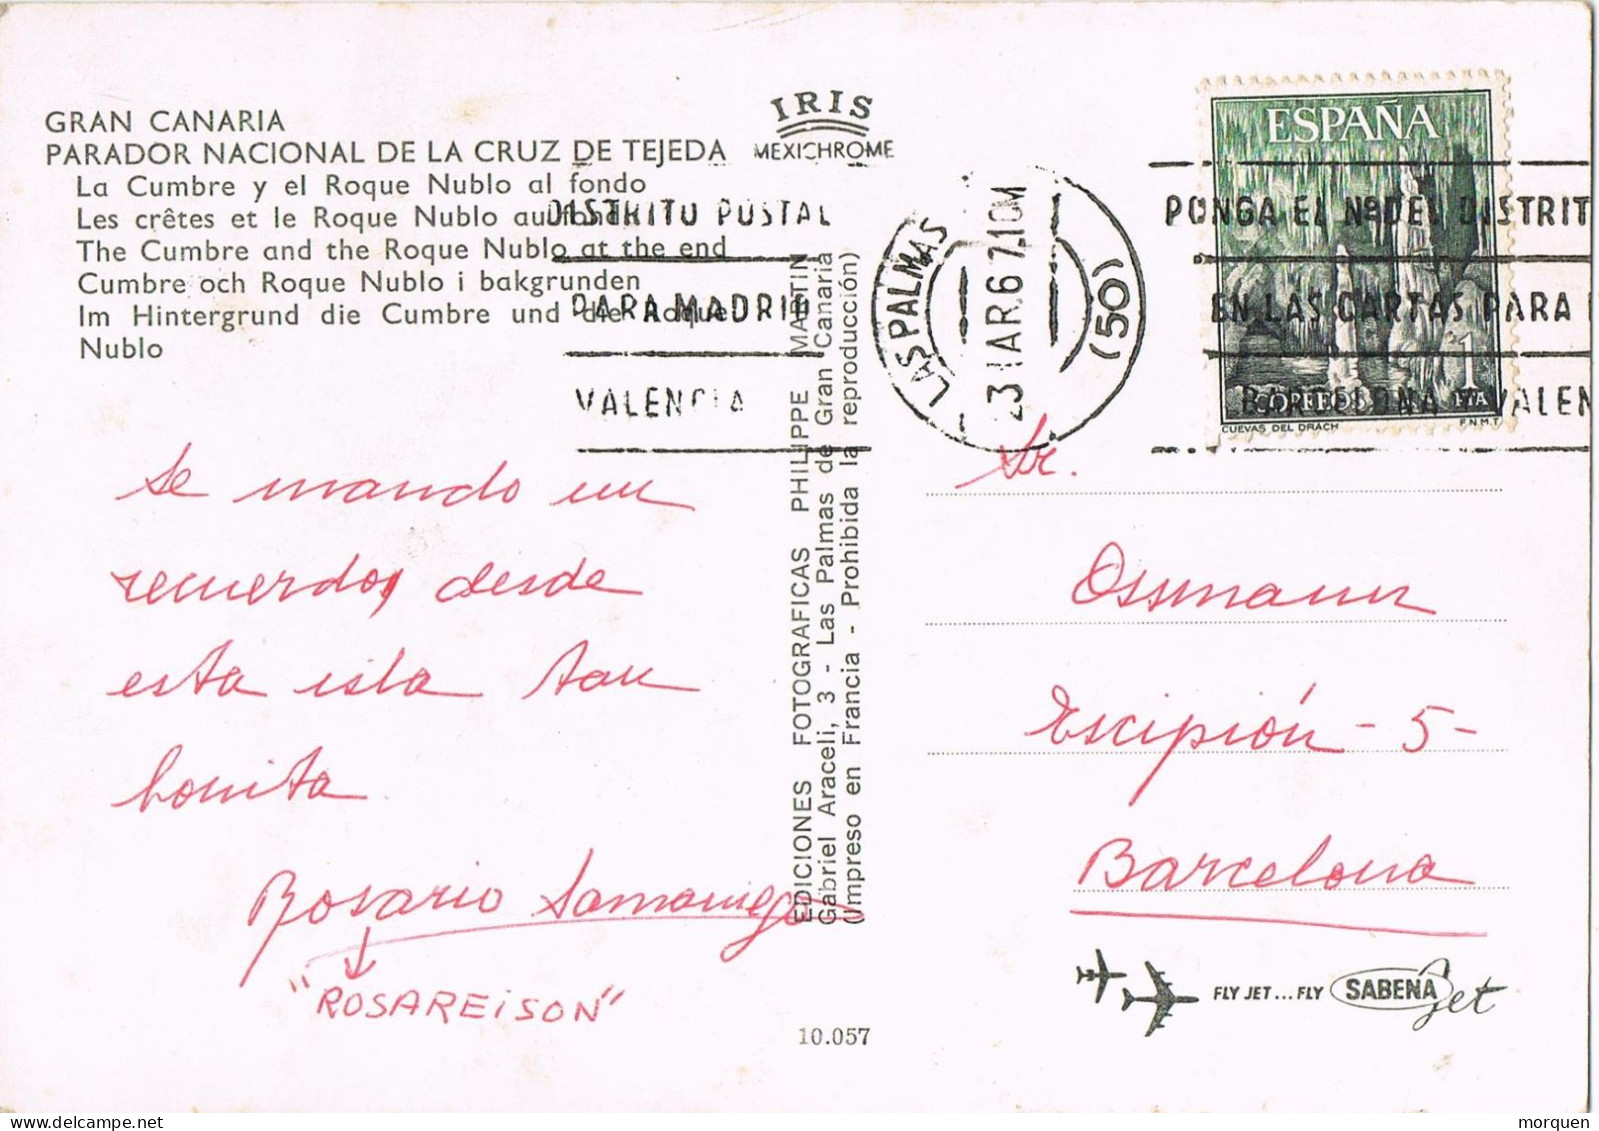 GRAN CANARIA
PARADOR NACIONAL DE LA CRUZ DE TEJEDA
La Cumbre y el Roque Nublo al fondo
Les crêtes et le Roque Nublo au fond
The Cumbre and the Roque Nublo at the end
Cumbre och Roque Nublo i bakgrunden
Im Hintergrund die Cumbre und die Roque
Nublo
IRIS
MEXICHROME
DISTRITO POSTAL
PARA MADRID
VALENCIA
LAS PALMAS
23 MAR 67 10M
(50)
PONGA EL Nº DEL DISTRIT
EN LAS CARTAS PARA
BARCELONA VALEN
ESPAÑA
1
CORREOS PTA
CUEVAS DEL DRACH F.N.M.T
Se mando un
recuerdo, desde
esta isla tan
bonita
Rosario Samaniego
"ROSAREiSON"
EDICIONES FOTOGRAFICAS PHILIPPE MARTIN
Gabriel Araceli, 3 - Las Palmas de Gran Canaria
(Impreso en Francia - Prohibida la reproducción)
Sr.
Ossmann
Escipión - 5 -
Barcelona
FLY JET... FLY SABENA Jet
10.057
morquen